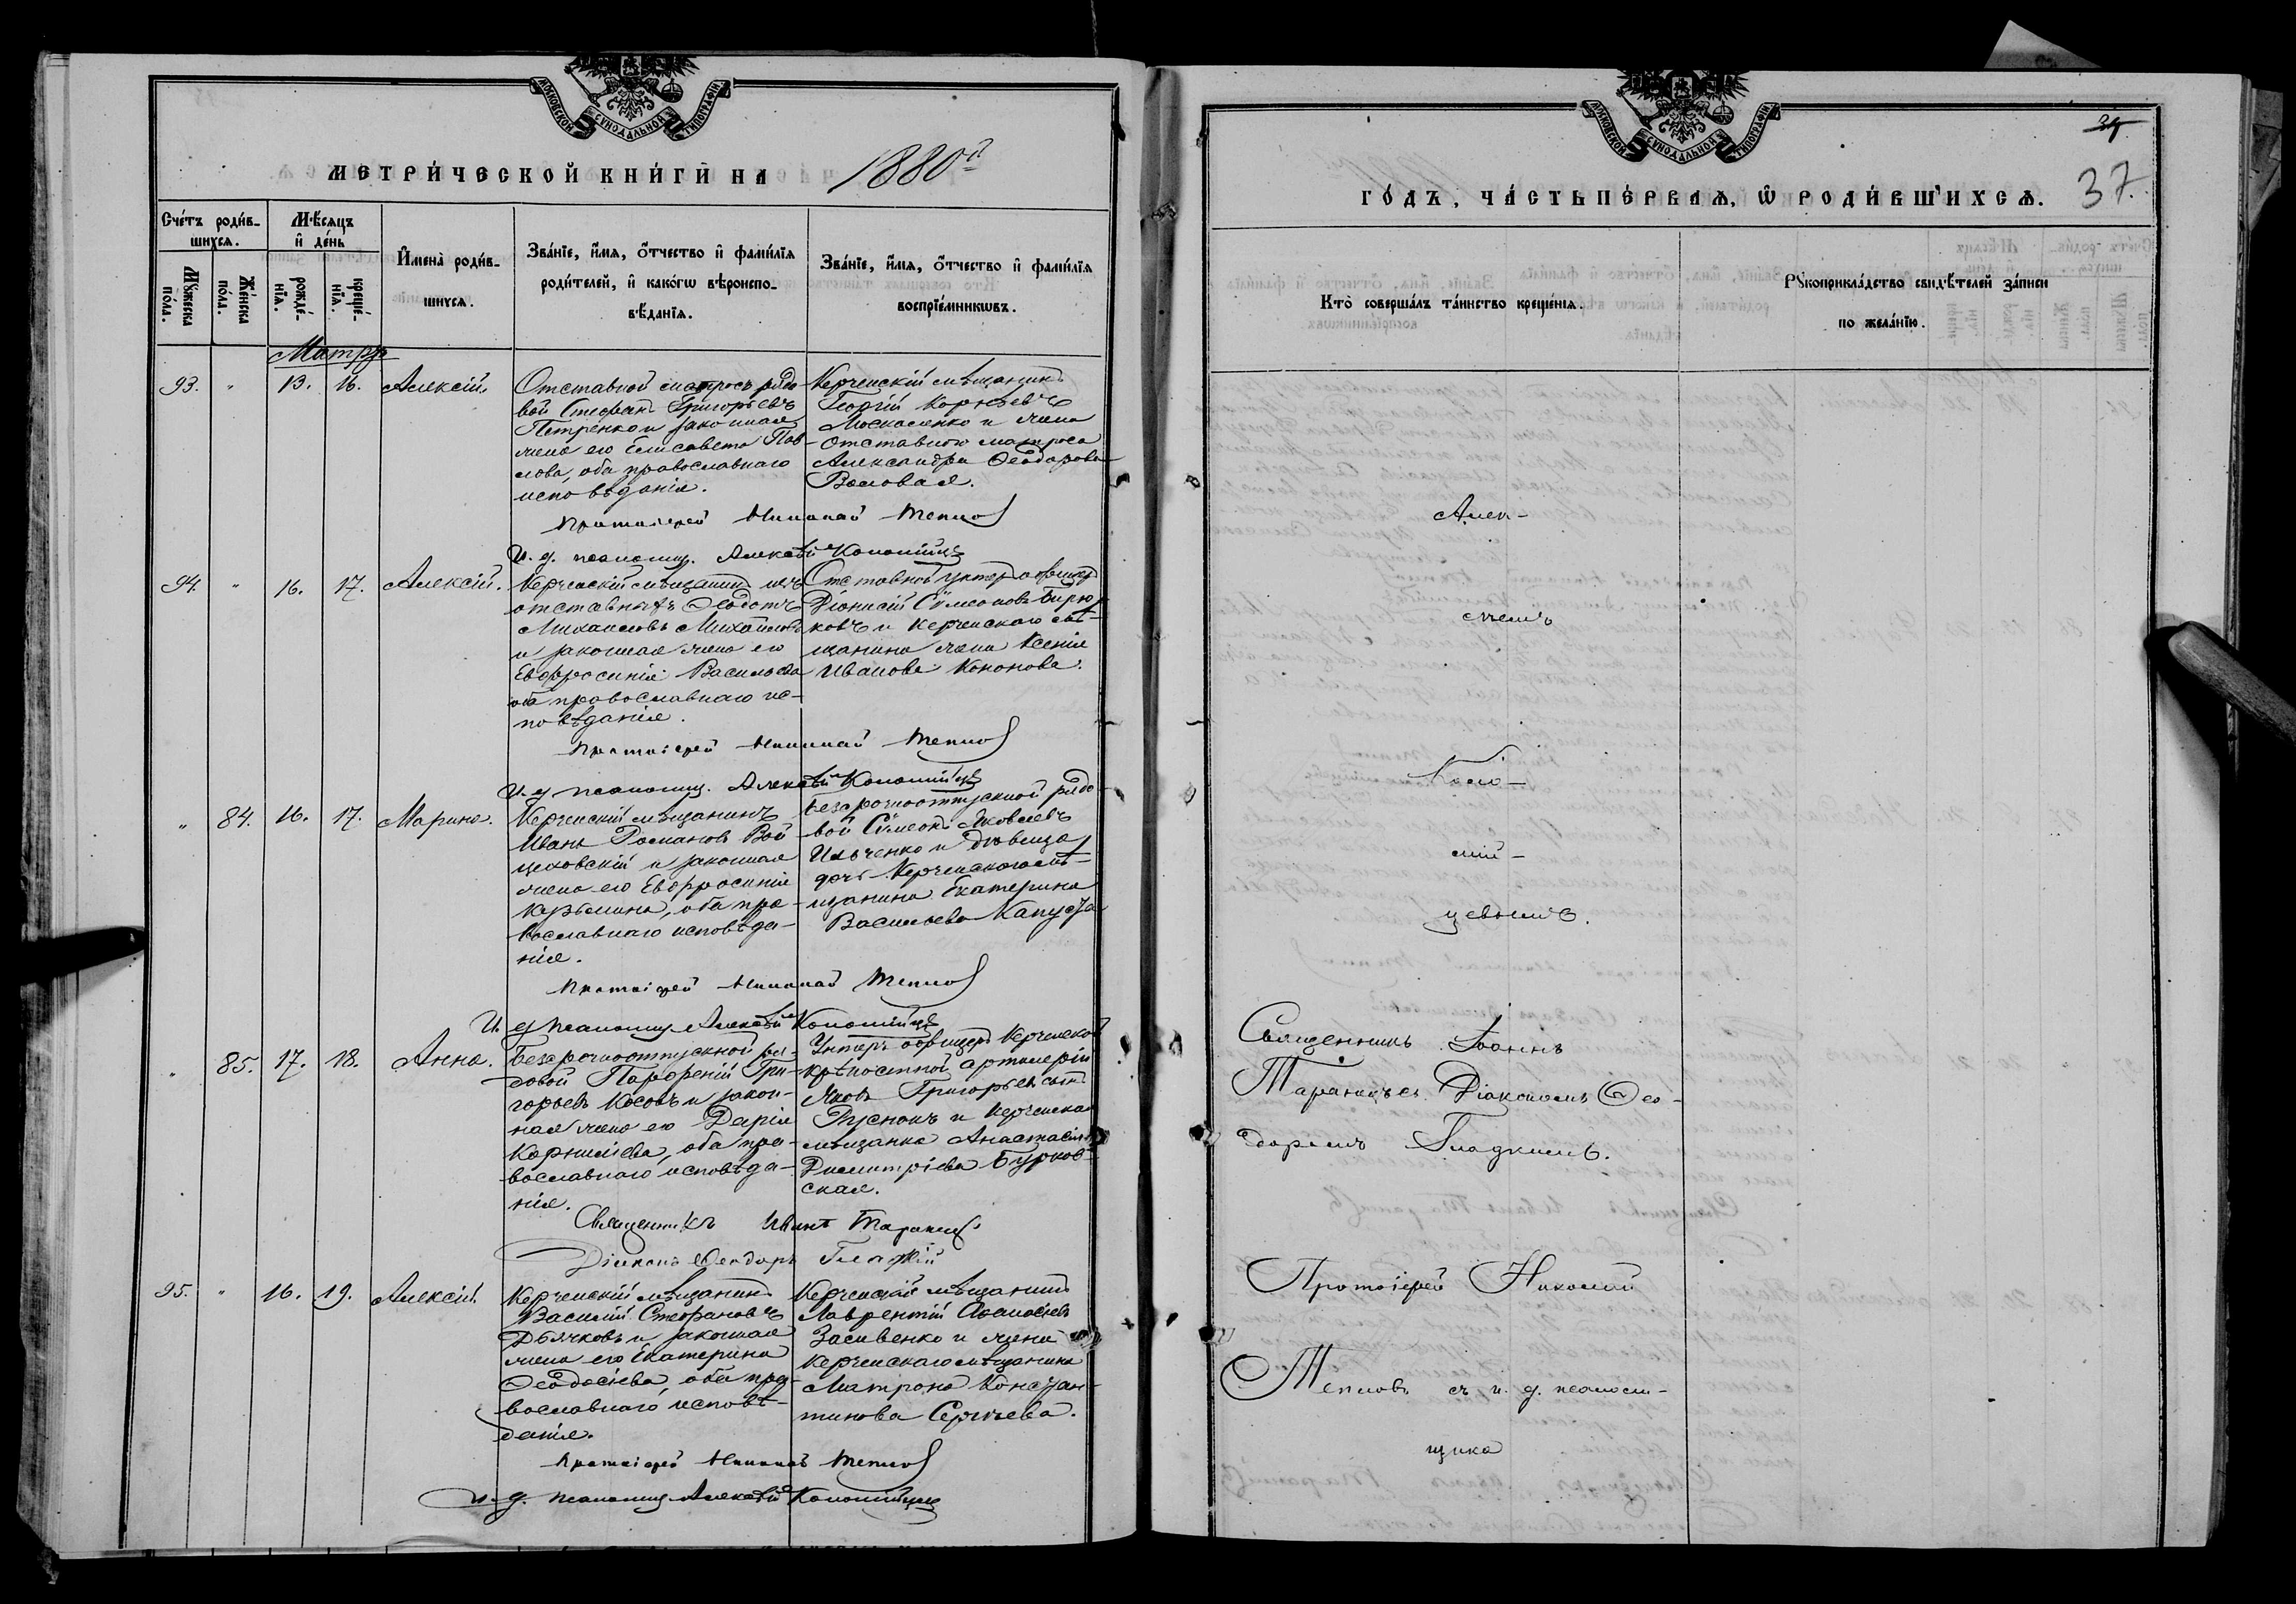 МОСКОВСКОЙ СѴНОДАЛЬНОЙ ТИПОГРАФІИ
МЕТРИ́ЧЕСКОЙ КНИ́ГИ НА 1880й
Сче́тъ роди́в-
шихся.
Мѣ́сяцъ
и҆ де́нь
Мꙋ́жеска по́ла.
Же́нска по́ла.
рожде́-нїѧ.
креще́-нїѧ.
И҆мена̀ роди́в-
шихся.
Зва́нїе, и҆́мя, ѻ҆́тчество и҆ фами́лїя
роди́телей, и҆ како́гѡ вѣроиспо-
вѣ́данїя.
Зва́нїе, и҆́мя, ѻ҆́тчество и҆ фами́лїя
воспрїе́мникѡвъ.
Мартъ
93. " 13. 16. Алексій.
Отставной матросъ рядо-
вой Стефанъ Григорьевъ
Петренко и законная
жена его Елисавета Пав-
лова, оба православнаго
исповѣданія.
Керченскій мѣщанинъ
Георгій
Москаленко и жена
отставного матроса
Александра Ѳеодорова
Воловая.
Протоіерей Николай Тепловъ
И. д. псаломщ. Алексѣй Коломійцевъ
94. " 16. 17. Алексій.
Керченскій мѣщанинъ изъ
отставныхъ Ѳеодотъ
Михаиловъ Михайловъ
и законная жена его
Евфросинія Васильева
оба православнаго ис-
повѣданія.
Отставной унтеръ офицеръ
Діонисій Сѵмеоновъ Бирю-
ковъ и Керченскаго мѣ-
щанина жена Ксенія
Иванова Кононова.
Протоіерей Николай Тепловъ
И. д. псаломщ. Алексѣй Коломійцевъ
" 84. 16. 17. Марина.
Керченскій мѣщанинъ
Иванъ Романовъ Вой-
цеховскій и законная
жена его Евфросинія
Кузьмина, оба пра-
вославнаго исповѣда-
нія.
Безсрочноотпускной рядо-
вой Сѵмеонъ Яковлевъ
Ильченко и дѣвица
дочь Керченскаго мѣ-
щанина Екатерина
Васильева Капуста
Протоіерей Николай Тепловъ
И. д. псаломщ. Алексѣй Коломійцевъ
" 85. 17. 18. Анна.
Безсрочноотпускной ря-
довой Парфеній Гри-
горьевъ Косовъ и закон-
ная жена его Дарія
Корниліева, оба пра-
вославнаго исповѣда-
нія.
Унтеръ офицеръ Керченской
крѣпостной артилеріи
Яковъ Григорьевъ
Руснокъ и Керченская
мѣщанка Анастасія
Димитріева Бурков-
ская.
Священникъ Иванъ Таранецъ
Діаконъ Ѳеодоръ Гладкій
95. " 16. 19. Алексій.
Керченскій мѣщанинъ
Василій Стефановъ
Дьячковъ и законная
жена его Екатерина
Ѳеодосіева, оба пра-
вославнаго исповѣ-
данія.
Керченскій мѣщанинъ
Лаврентій Аѳанасіевъ
Засивенко и жена
Керченскаго мѣщанина
Матрона Констан-
тинова Сергѣева.
Протоіерей Николай Тепловъ
И. д. псаломщ. Алексѣй Коломійцевъ
МОСКОВСКОЙ СѴНОДАЛЬНОЙ ТИПОГРАФІИ
37.
ГО́ДЪ, ЧА́СТЬ ПЕ́РВАЯ, Ѡ҆ РОДИ́ВШИХСЯ.
Кто̀ соверша́лъ та́инство креще́нїя.
Рꙋкоприкла́дство свидѣ́телей за́писи
по жела́нїю.
Алек-
сѣемъ
Коло-
мій-
цевымъ.
Священникъ Іоаннъ
Таранецъ съ Діакономъ Ѳео-
доромъ Гладкимъ.
Протоіерей Николай
Тепловъ съ и. д. псаломщ-
щика